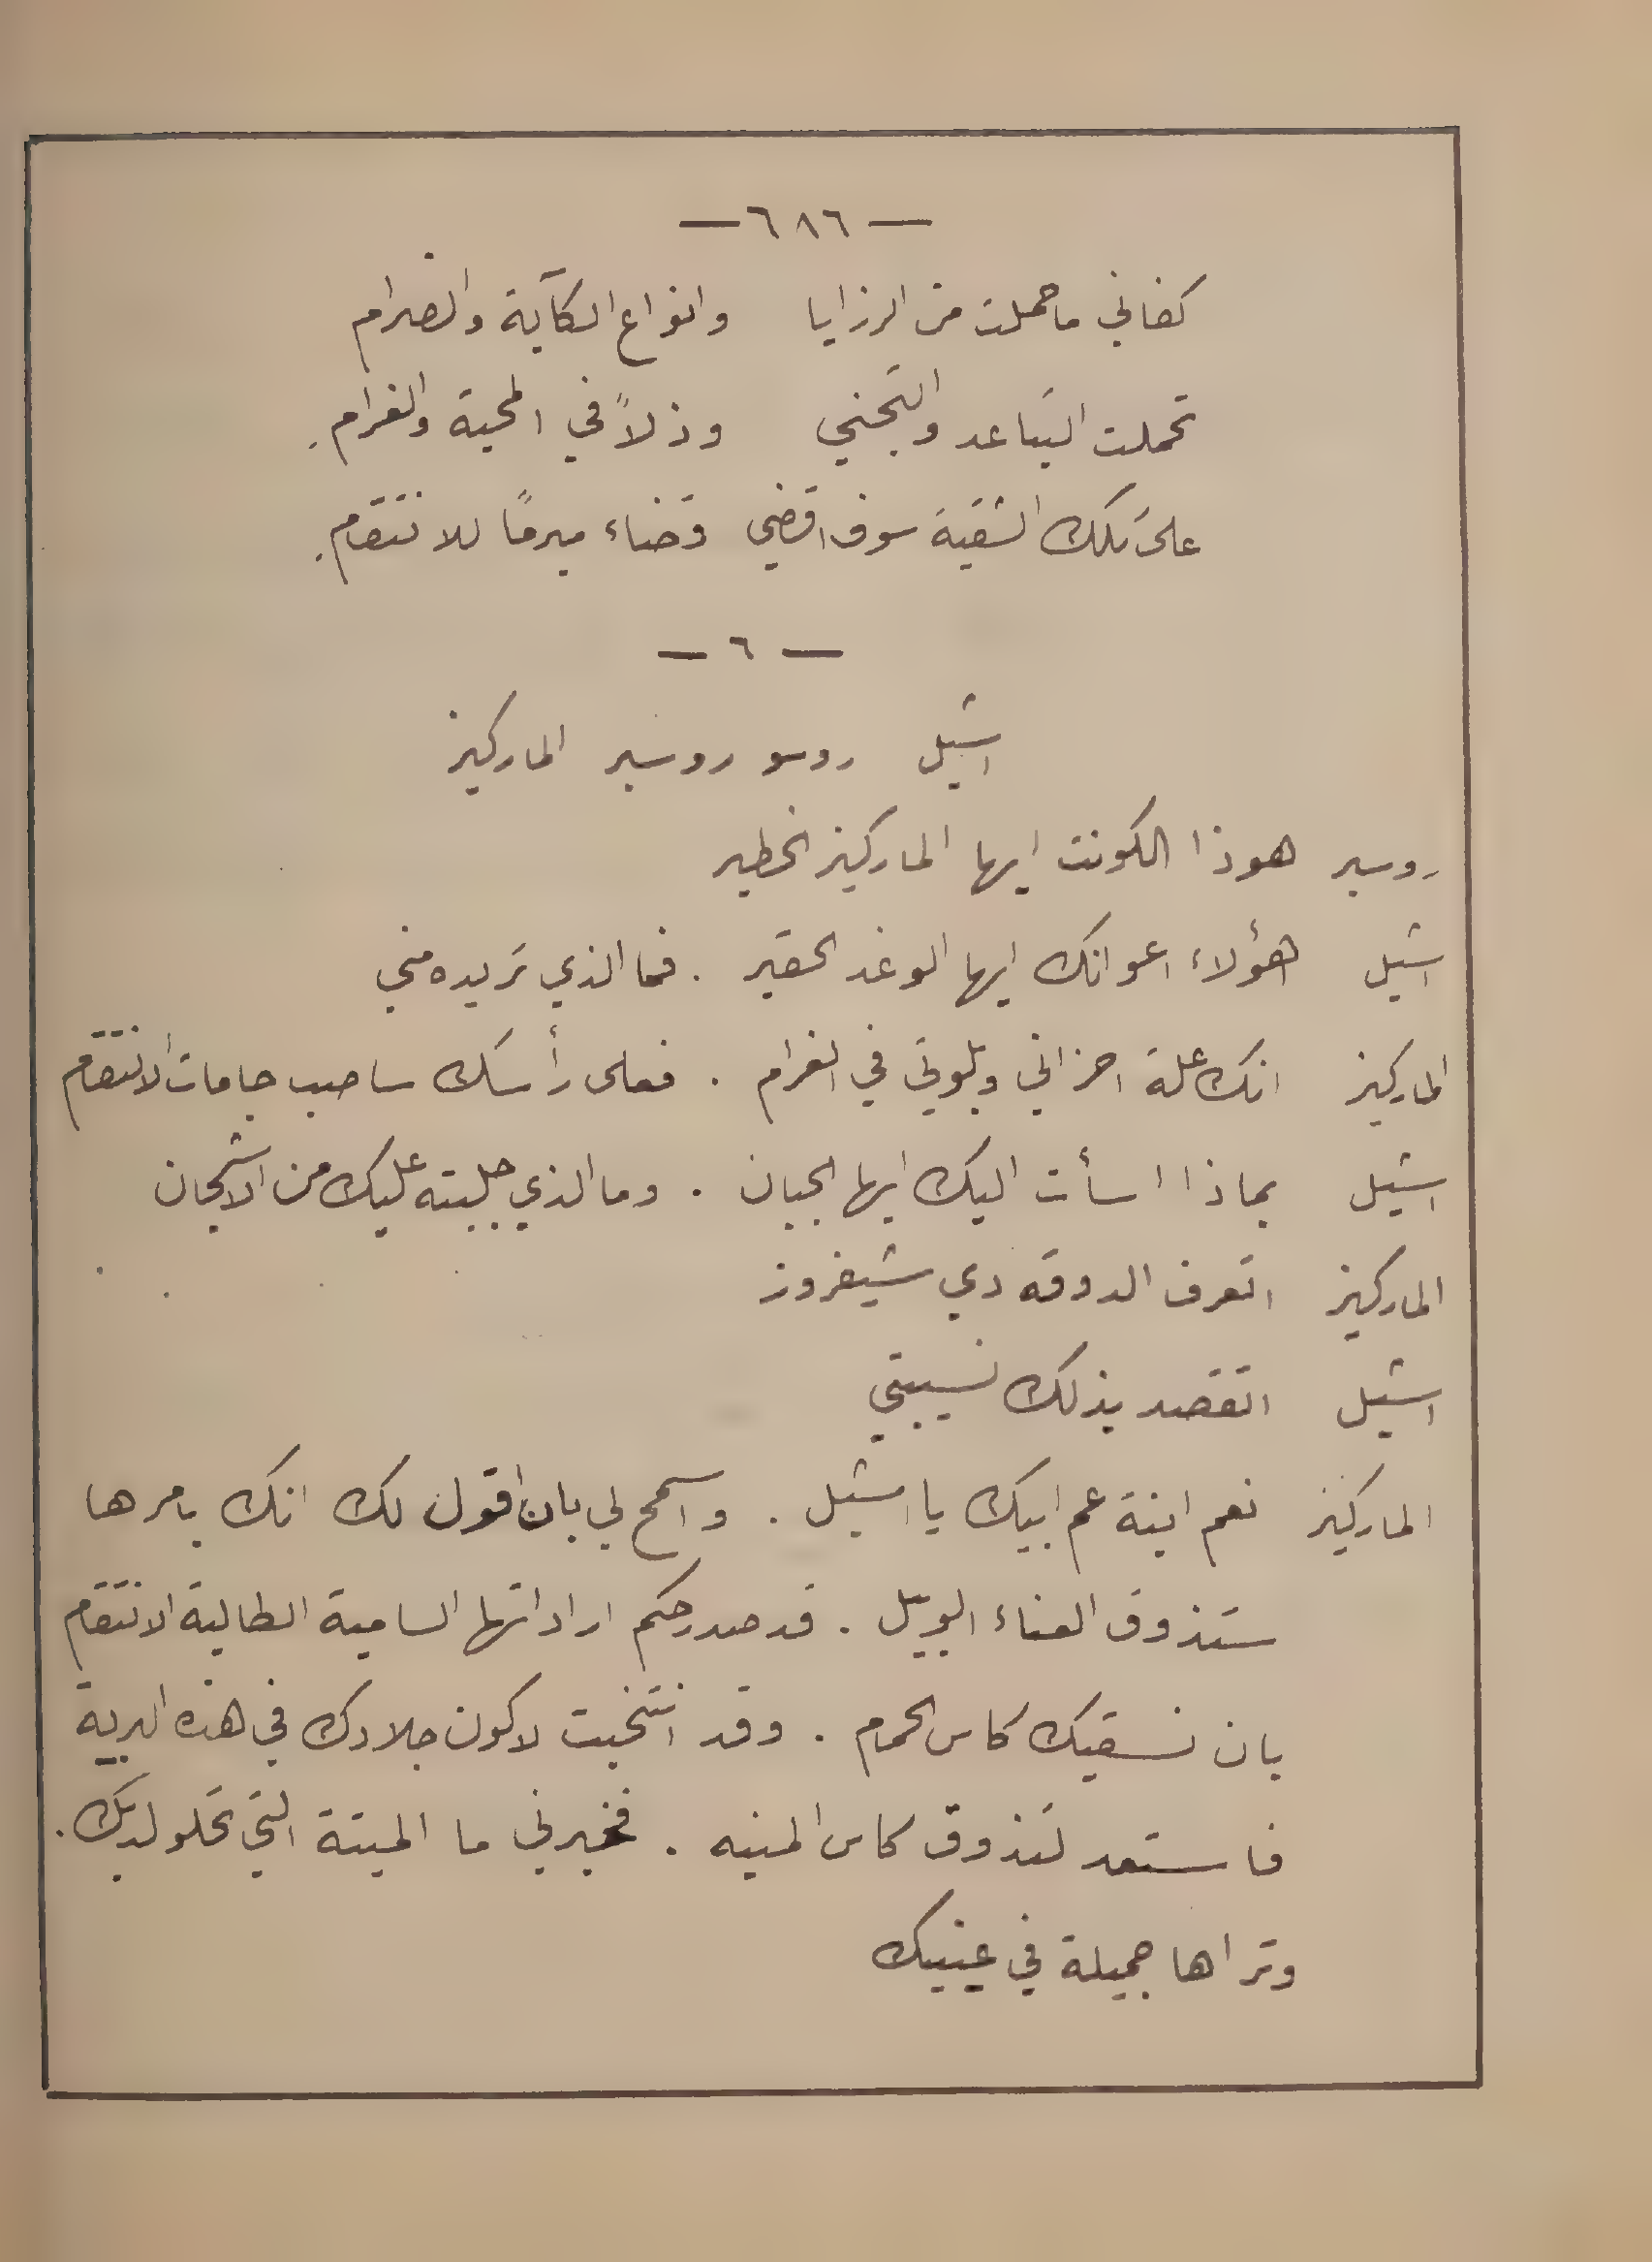 — ٦٨٦ —
كفاني ما حملت من الرزايا وانواع الكآبة والضرام
تحملت التباعد والتجني وذلاً في المحبة والغرام.
على تلك الشقية سوف اقضي قضاء مبرمًا للانتقام.
— ٦ —
اشيل روسو روسير الماركيز
روسير هوذا الكونت ايها الماركيز الخطير
اشيل هؤلاء اعوانك ايها الوغد الحقير . فما الذي تريده مني
الماركيز انك علة احزاني وبلوتي في الغرام . فعلى رأسك ساصب جامات الانتقام
اشيل بماذا اسأت اليك ايها الجبان . وما الذي جلبته عليك من الاشجان
الماركيز اتعرف الدوقه دي شيفروز
اشيل اتقصد بذلك نسيبتي
الماركيز نعم ابنة عم ابيك يا اشيل . واسمح لي بان اقول لك انك بامرها
ستذوق العناء الوبيل . قد صدر حكم اراداتها السامية الطالبة الانتقام
بان نسقيك كاس الحمام . وقد انتخبت لاكون جلادك في هذه البرية
فاستعد لتذوق كاس المنيه . فخبرني ما الميتة التي تحلو لديك .
وتراها جميلة في عينيك